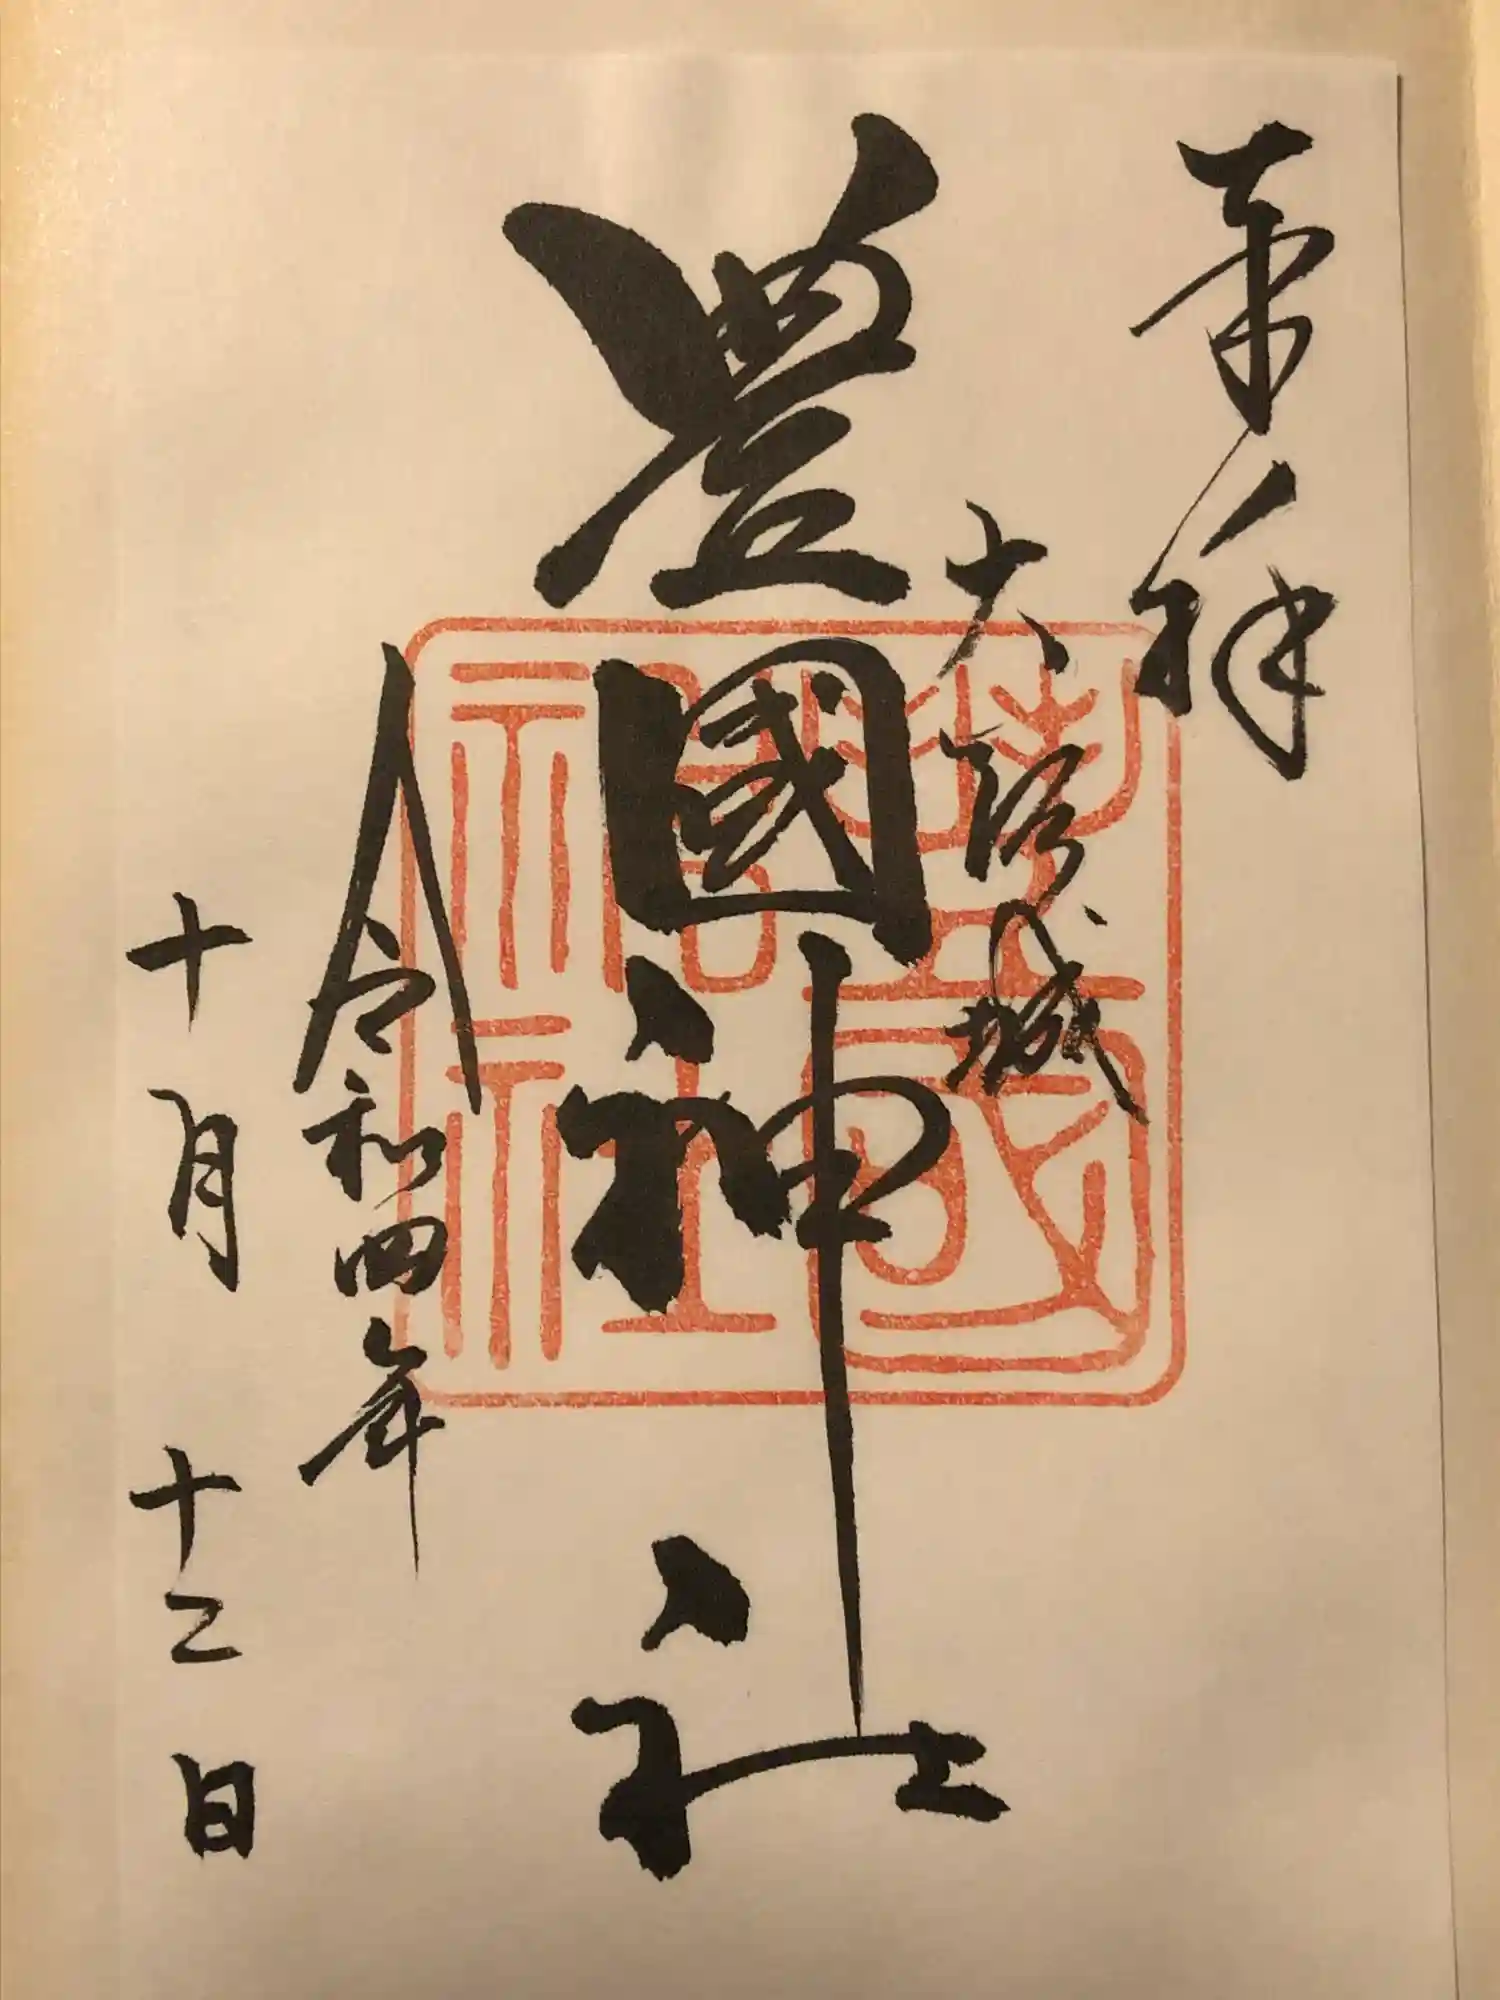 奉拝
大阪城
豊國神社
令和四年
十月十二日
豊國神社